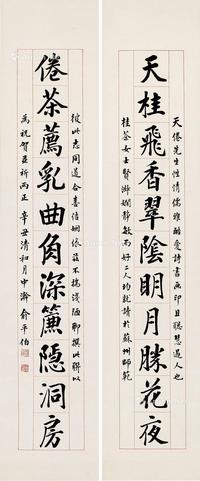 天桂飛香翠陰明月勝花夜
天倦先生性情儒雅酷愛詩書画印且聰慧過人也
桂荼女士賢淑嫻靜敏而好二人均就讀於蘇州師範
倦荼薦乳曲角深簾隱洞房
彼此志同道合喜結姻依茲不揣淺陋聊撰此聯以
為祝賀並祈兩正 辛丑清和月中澣 俞平伯